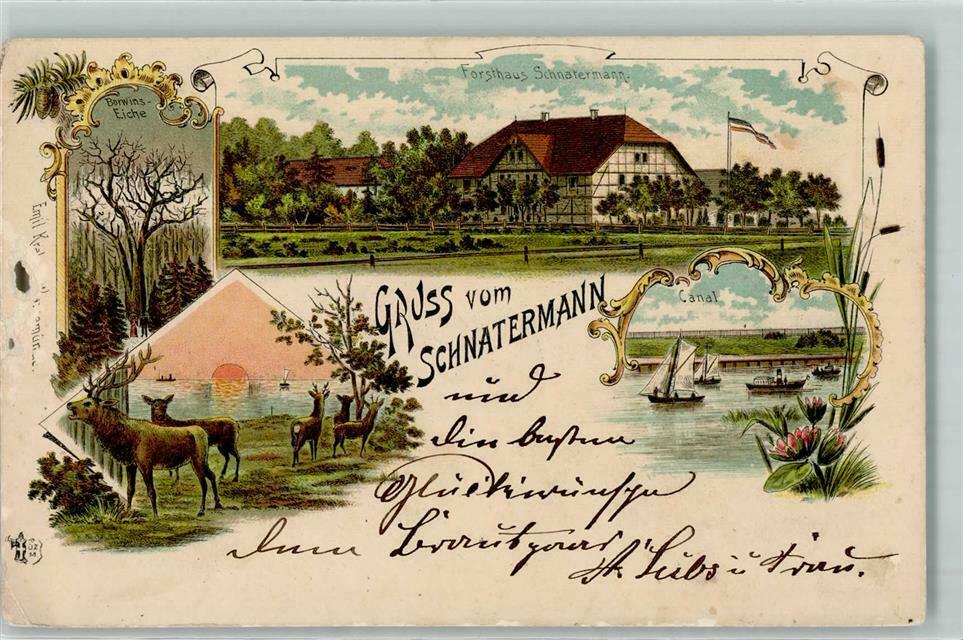 Forsthaus Schnatermann.
Borwins-
Eiche
GRUSS vom
SCHNATERMANN
Canal
und
die besten
Glückwünsche
dem Brautpaar
u. Frau.
Emil